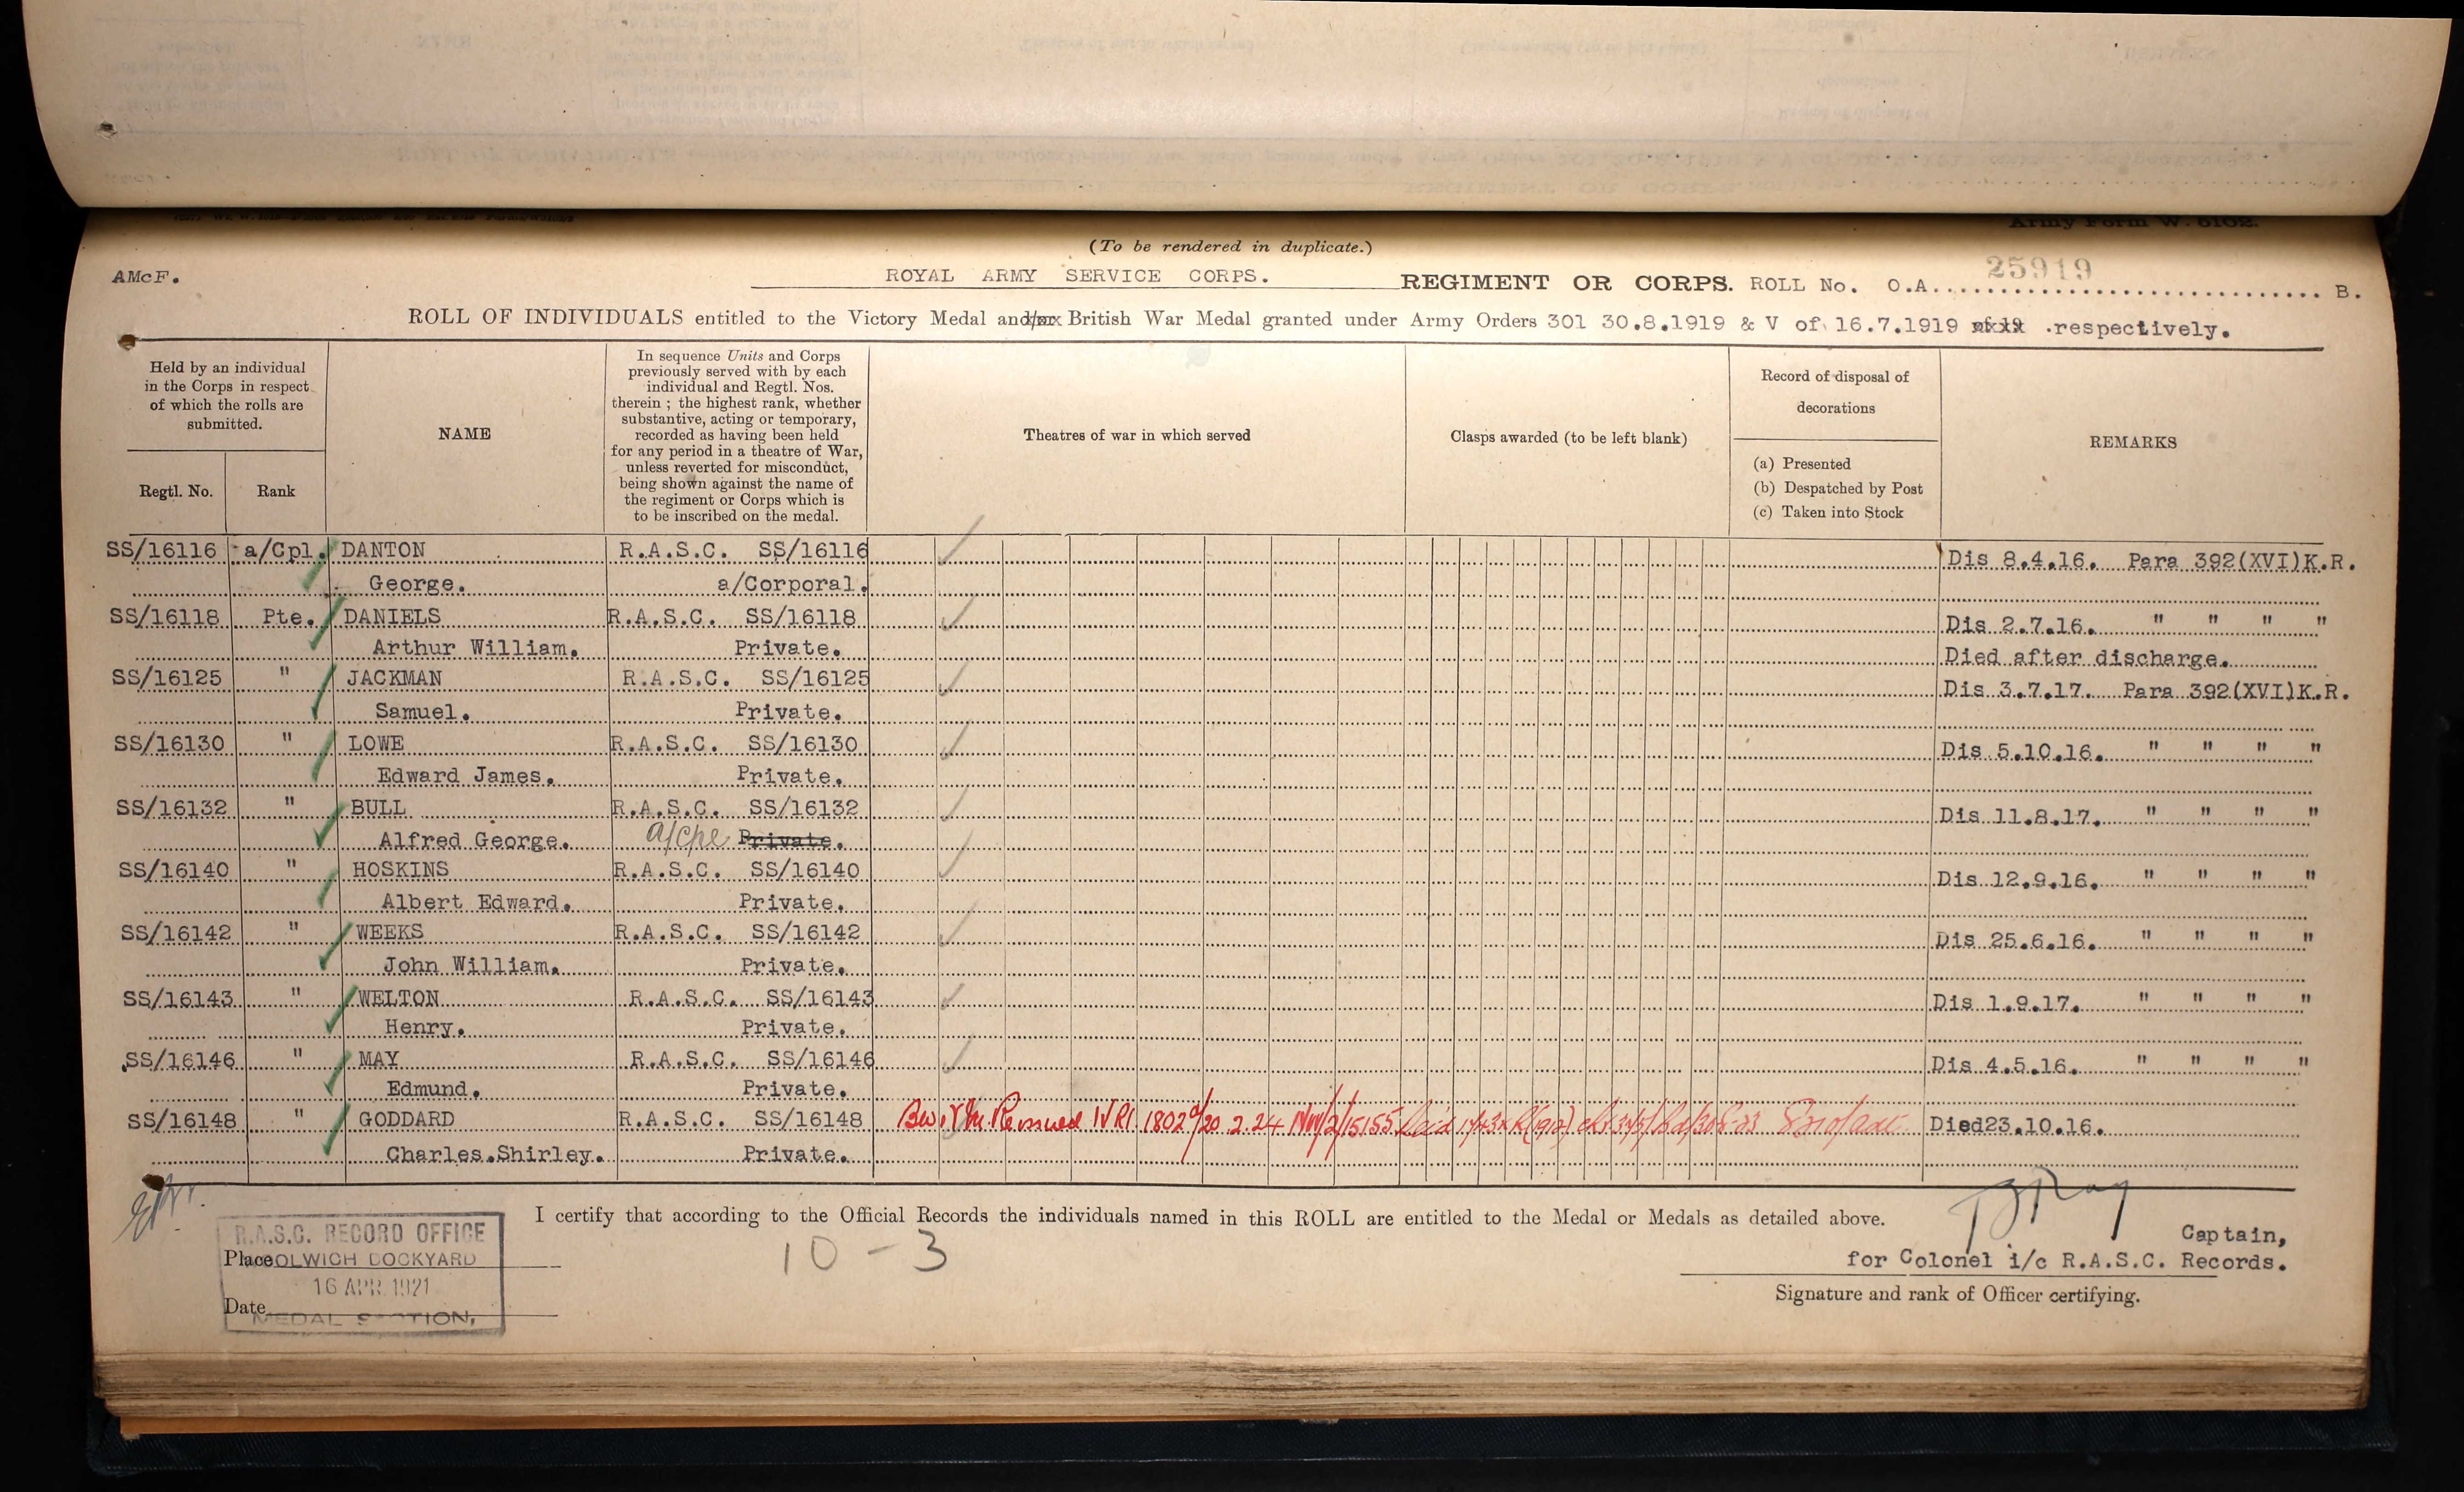 Army Form W. 5102.
(To be rendered in duplicate.)
AMcF.
ROYAL ARMY SERVICE CORPS. REGIMENT OR CORPS. ROLL No. O.A. 25919 B.
ROLL OF INDIVIDUALS entitled to the Victory Medal and/or British War Medal granted under Army Orders 301 30.8.1919 & V of 16.7.1919 respectively.
Held by an individual
in the Corps in respect
of which the rolls are
submitted.
Regtl. No.
Rank
NAME
In sequence Units and Corps
previously served with by each
individual and Regtl. Nos.
therein ; the highest rank, whether
substantive, acting or temporary,
recorded as having been held
for any period in a theatre of War,
unless reverted for misconduct,
being shown against the name of
the regiment or Corps which is
to be inscribed on the medal.
Theatres of war in which served
Clasps awarded (to be left blank)
Record of disposal of
decorations
(a) Presented
(b) Despatched by Post
(c) Taken into Stock
REMARKS
SS/16116 a/Cpl. DANTON R.A.S.C. SS/16116 Dis 8.4.16. Para 392(XVI)K.R.
George. a/Corporal.
SS/16118 Pte. DANIELS R.A.S.C. SS/16118 Dis 2.7.16. " " " "
Arthur William. Private. Died after discharge.
SS/16125 " JACKMAN R.A.S.C. SS/16125 Dis 3.7.17. Para 392(XVI)K.R.
Samuel. Private.
SS/16130 " LOWE R.A.S.C. SS/16130 Dis 5.10.16. " " " "
Edward James. Private.
SS/16132 " BULL R.A.S.C. SS/16132 Dis 11.8.17. " " " "
Alfred George. a/Cpl Private.
SS/16140 " HOSKINS R.A.S.C. SS/16140 Dis 12.9.16. " " " "
Albert Edward. Private.
SS/16142 " WEEKS R.A.S.C. SS/16142 Dis 25.6.16. " " " "
John William. Private.
SS/16143 " WELTON R.A.S.C. SS/16143 Dis 1.9.17. " " " "
Henry. Private.
SS/16146 " MAY R.A.S.C. SS/16146 Dis 4.5.16. " " " "
Edmund. Private.
SS/16148 " GODDARD R.A.S.C. SS/16148 Reissued 2.24 Died 23.10.16.
Charles.Shirley. Private.
I certify that according to the Official Records the individuals named in this ROLL are entitled to the Medal or Medals as detailed above.
10 - 3
R.A.S.C. RECORD OFFICE
Place OLWICH DOCKYARD
16 APR 1921
Date
MEDAL SECTION,
Captain,
for Colonel i/c R.A.S.C. Records.
Signature and rank of Officer certifying.